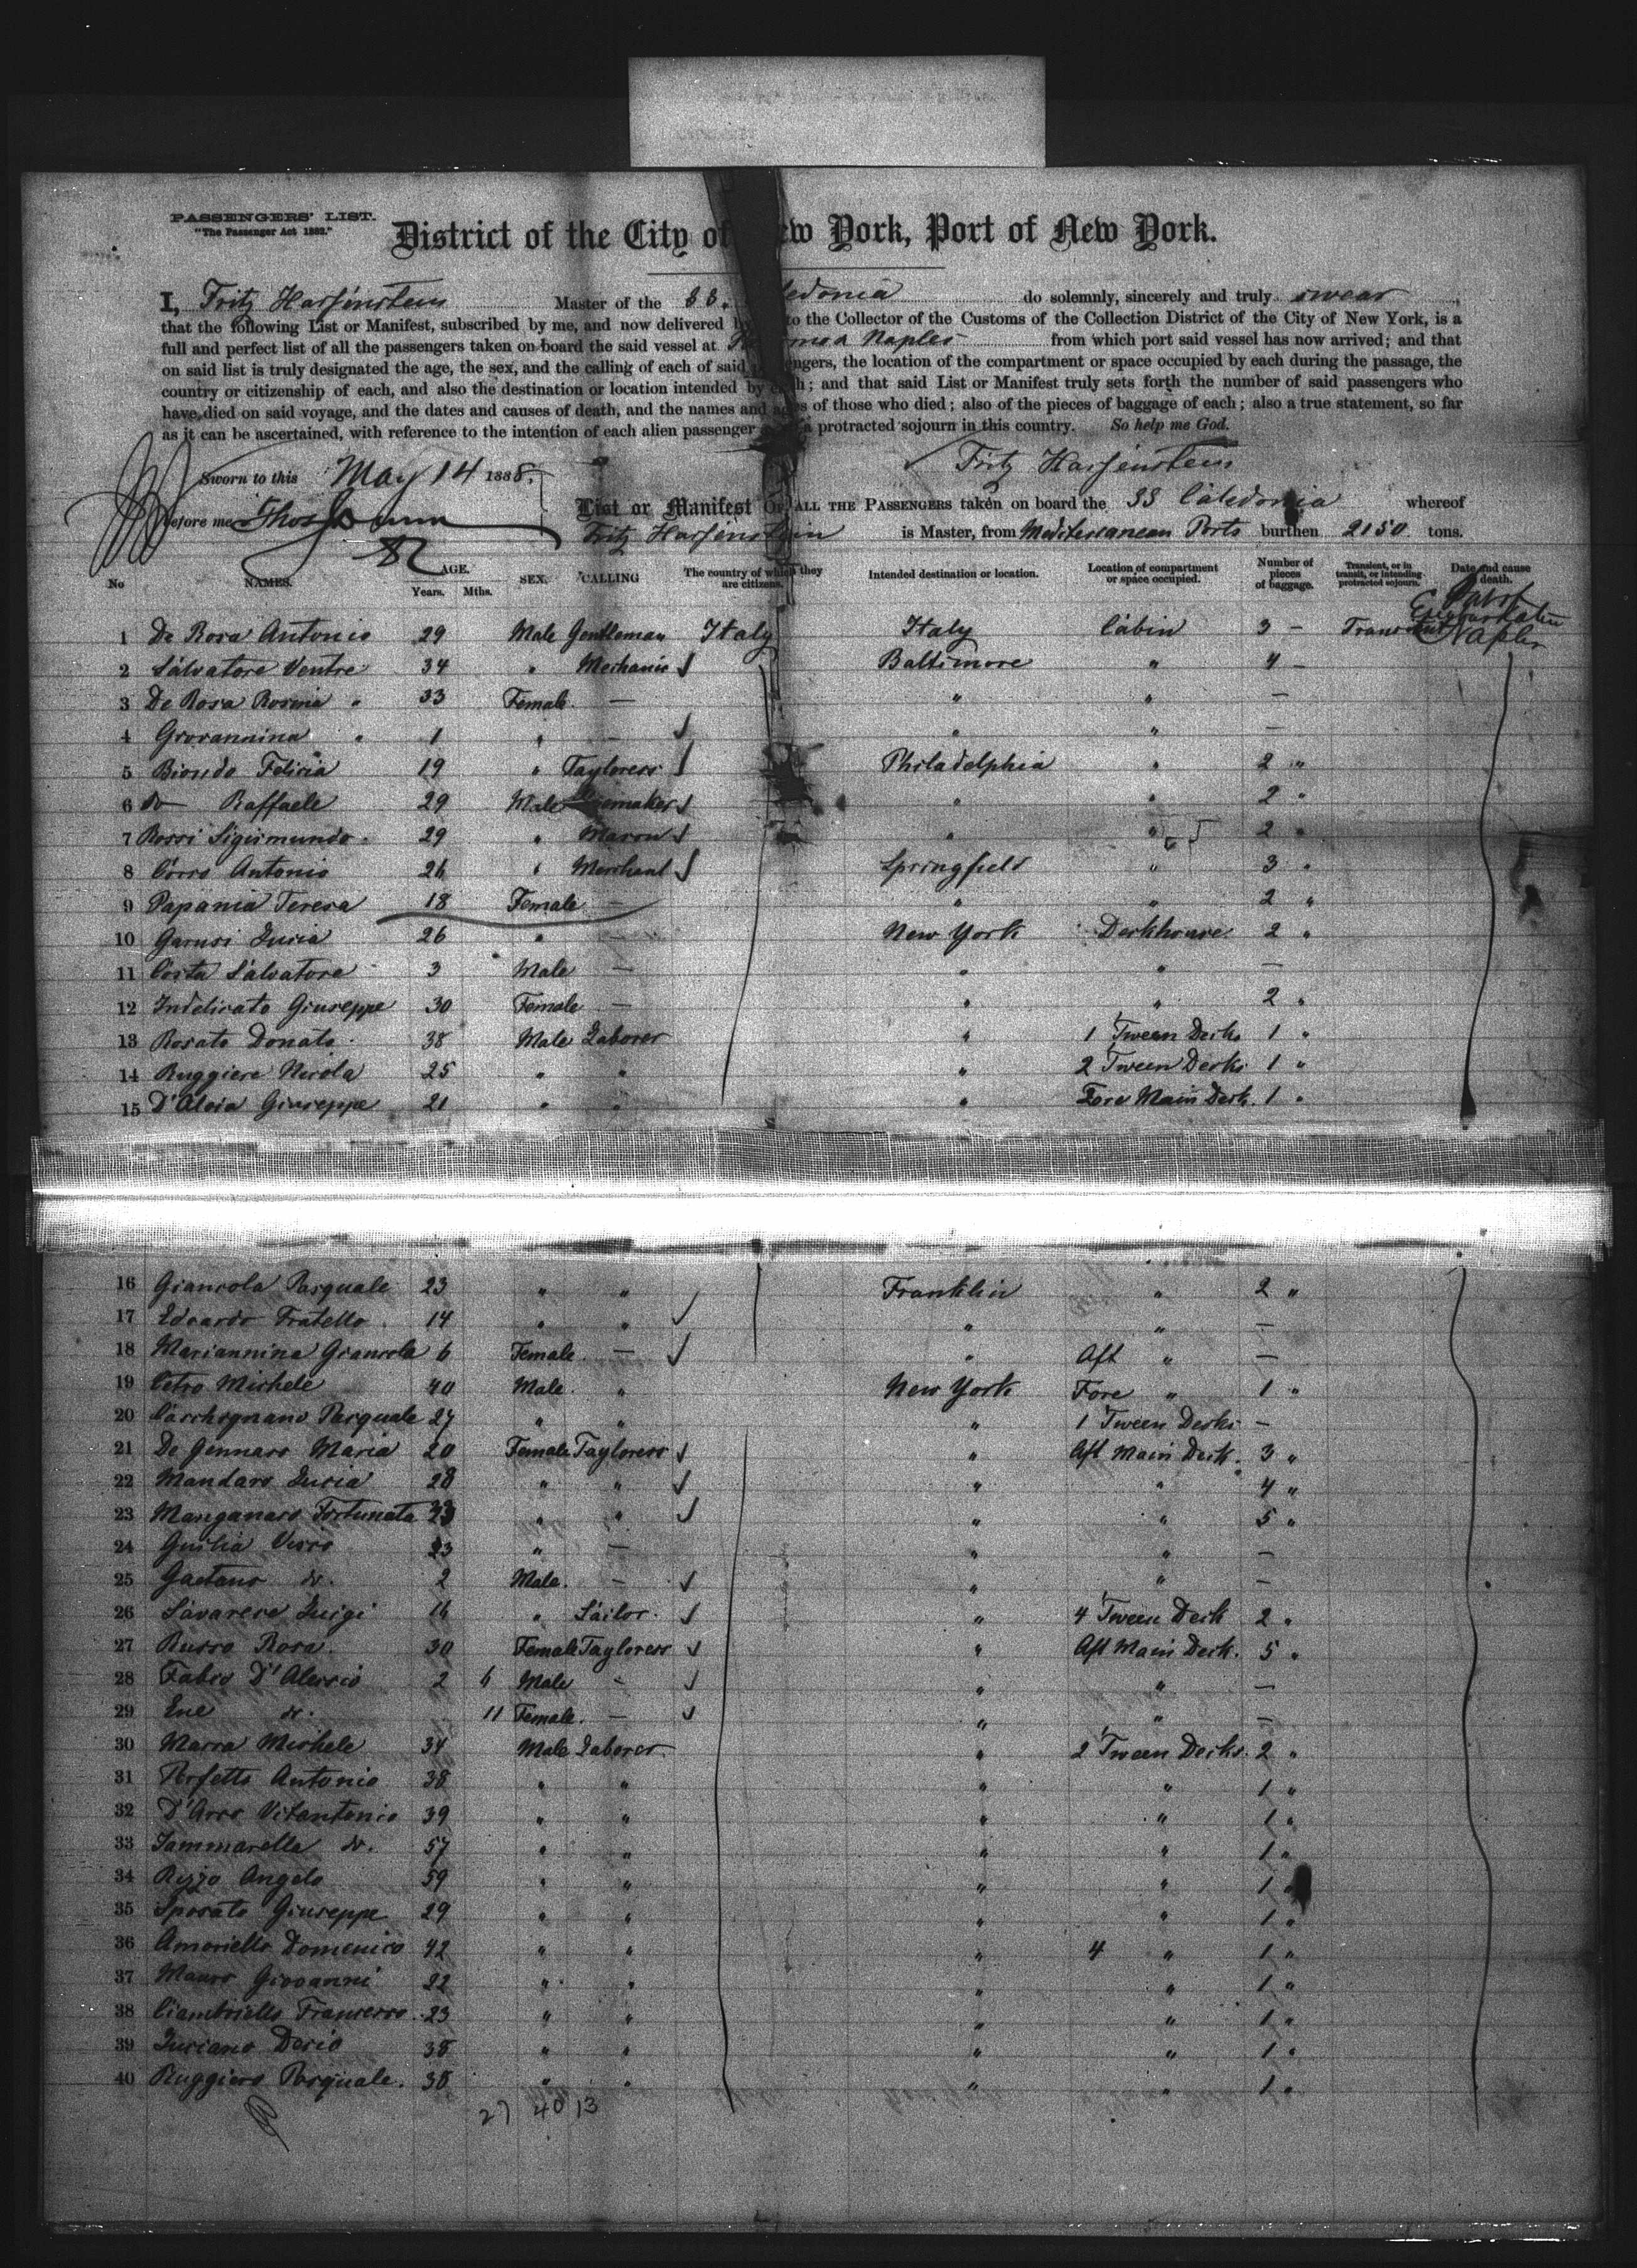 PASSENGERS' LIST.
"The Passenger Act 1882."
District of the City of New York, Port of New York.
I, Fritz Harfenstein Master of the SS. Caledonia do solemnly, sincerely and truly swear
that the following List or Manifest, subscribed by me, and now delivered by to the Collector of the Customs of the Collection District of the City of New York, is a
full and perfect list of all the passengers taken on board the said vessel at Naples from which port said vessel has now arrived; and that
on said list is truly designated the age, the sex, and the calling of each of said passengers, the location of the compartment or space occupied by each during the passage, the
country or citizenship of each, and also the destination or location intended by each; and that said List or Manifest truly sets forth the number of said passengers who
have died on said voyage, and the dates and causes of death, and the names and ages of those who died; also of the pieces of baggage of each; also a true statement, so far
as it can be ascertained, with reference to the intention of each alien passenger a protracted sojourn in this country. So help me God.
Sworn to this May 14 1888. Fritz Harfenstein
before me Thos
List or Manifest OF ALL THE PASSENGERS taken on board the SS Caledonia whereof
Fritz Harfenstein is Master, from Mediterranean Ports burthen 2150 tons.
No NAMES. AGE. Years. Mths. SEX. CALLING The country of which they are citizens. Intended destination or location. Location of compartment or space occupied. Number of pieces of baggage. Transient, or in transit, or intending protracted sojourn. Date and cause of death.
1 De Rosa Antonio 29 Male Gentleman Italy Italy Cabin 3 - Naples
2 Salvatore Ventre 34 " Mechanic Baltimore " 4 -
3 De Rosa Rosina " 33 Female - " " -
4 Giovannina " 1 " - " " -
5 Biondo Felicia 19 " Tayloress Philadelphia " 2 "
6 do Raffaele 29 Male " " 2 "
7 Rossi Sigismundo 29 " Mason " " 2 "
8 Corso Antonio 26 " Merchant Springfield " 3 "
9 Papania Teresa 18 Female - " " 2 "
10 Garusi Lucia 26 " - New York Deckhouse 2 "
11 Costa Salvatore 3 Male - " " -
12 Indelicato Giuseppe 30 Female - " " 2 "
13 Rosato Donato 38 Male Laborer " 1 Tween Decks 1 "
14 Ruggiere Nicola 25 " " " 2 Tween Decks 1 "
15 D'Aloia Giuseppe 21 " " " Fore Main Deck. 1 "
16 Giancola Pasquale 23 " " Franklin " 2 "
17 Edoardo Fratello 14 " " " " -
18 Mariannina Giancola 6 Female - " Aft " -
19 Cetro Michele 40 Male " New York Fore " 1 "
20 Pasquale 27 " " " 1 Tween Decks -
21 De Gennaro Maria 20 Female Tayloress " Aft Main Deck. 3 "
22 Mandaro Lucia 28 " " " " 4 "
23 Manganaro Fortunata 23 " " " " 5 "
24 Guilia 23 " - " " -
25 Gaetano do. 2 Male. - " " -
26 Savarese Luigi 16 " Sailor. " 4 Tween Deck 2 "
27 Russo Rosa 30 Female Tayloress " Aft Main Deck. 5 "
28 Fabio D'Alessio 2 6 Male - " " -
29 Ene do. 11 Female. - " " -
30 Marra Michele 34 Male Laborer " 2 Tween Decks. 2 "
31 Perfetto Antonio 38 " " " " 1 "
32 D'Arco Vitantonio 39 " " " " 1 "
33 Iammarella do. 57 " " " " 1 "
34 Rizzo Angelo 59 " " " " 1 "
35 Sposato Giuseppe 29 " " " " 1 "
36 Amoriello Domenico 42 " " " 4 " 1 "
37 Mauro Giovanni 22 " " " " 1 "
38 Ciambriello Francesco 23 " " " " 1 "
39 Luciano Decio 38 " " " " 1 "
40 Ruggiero Pasquale. 38 " " " " 1 "
27 40 13